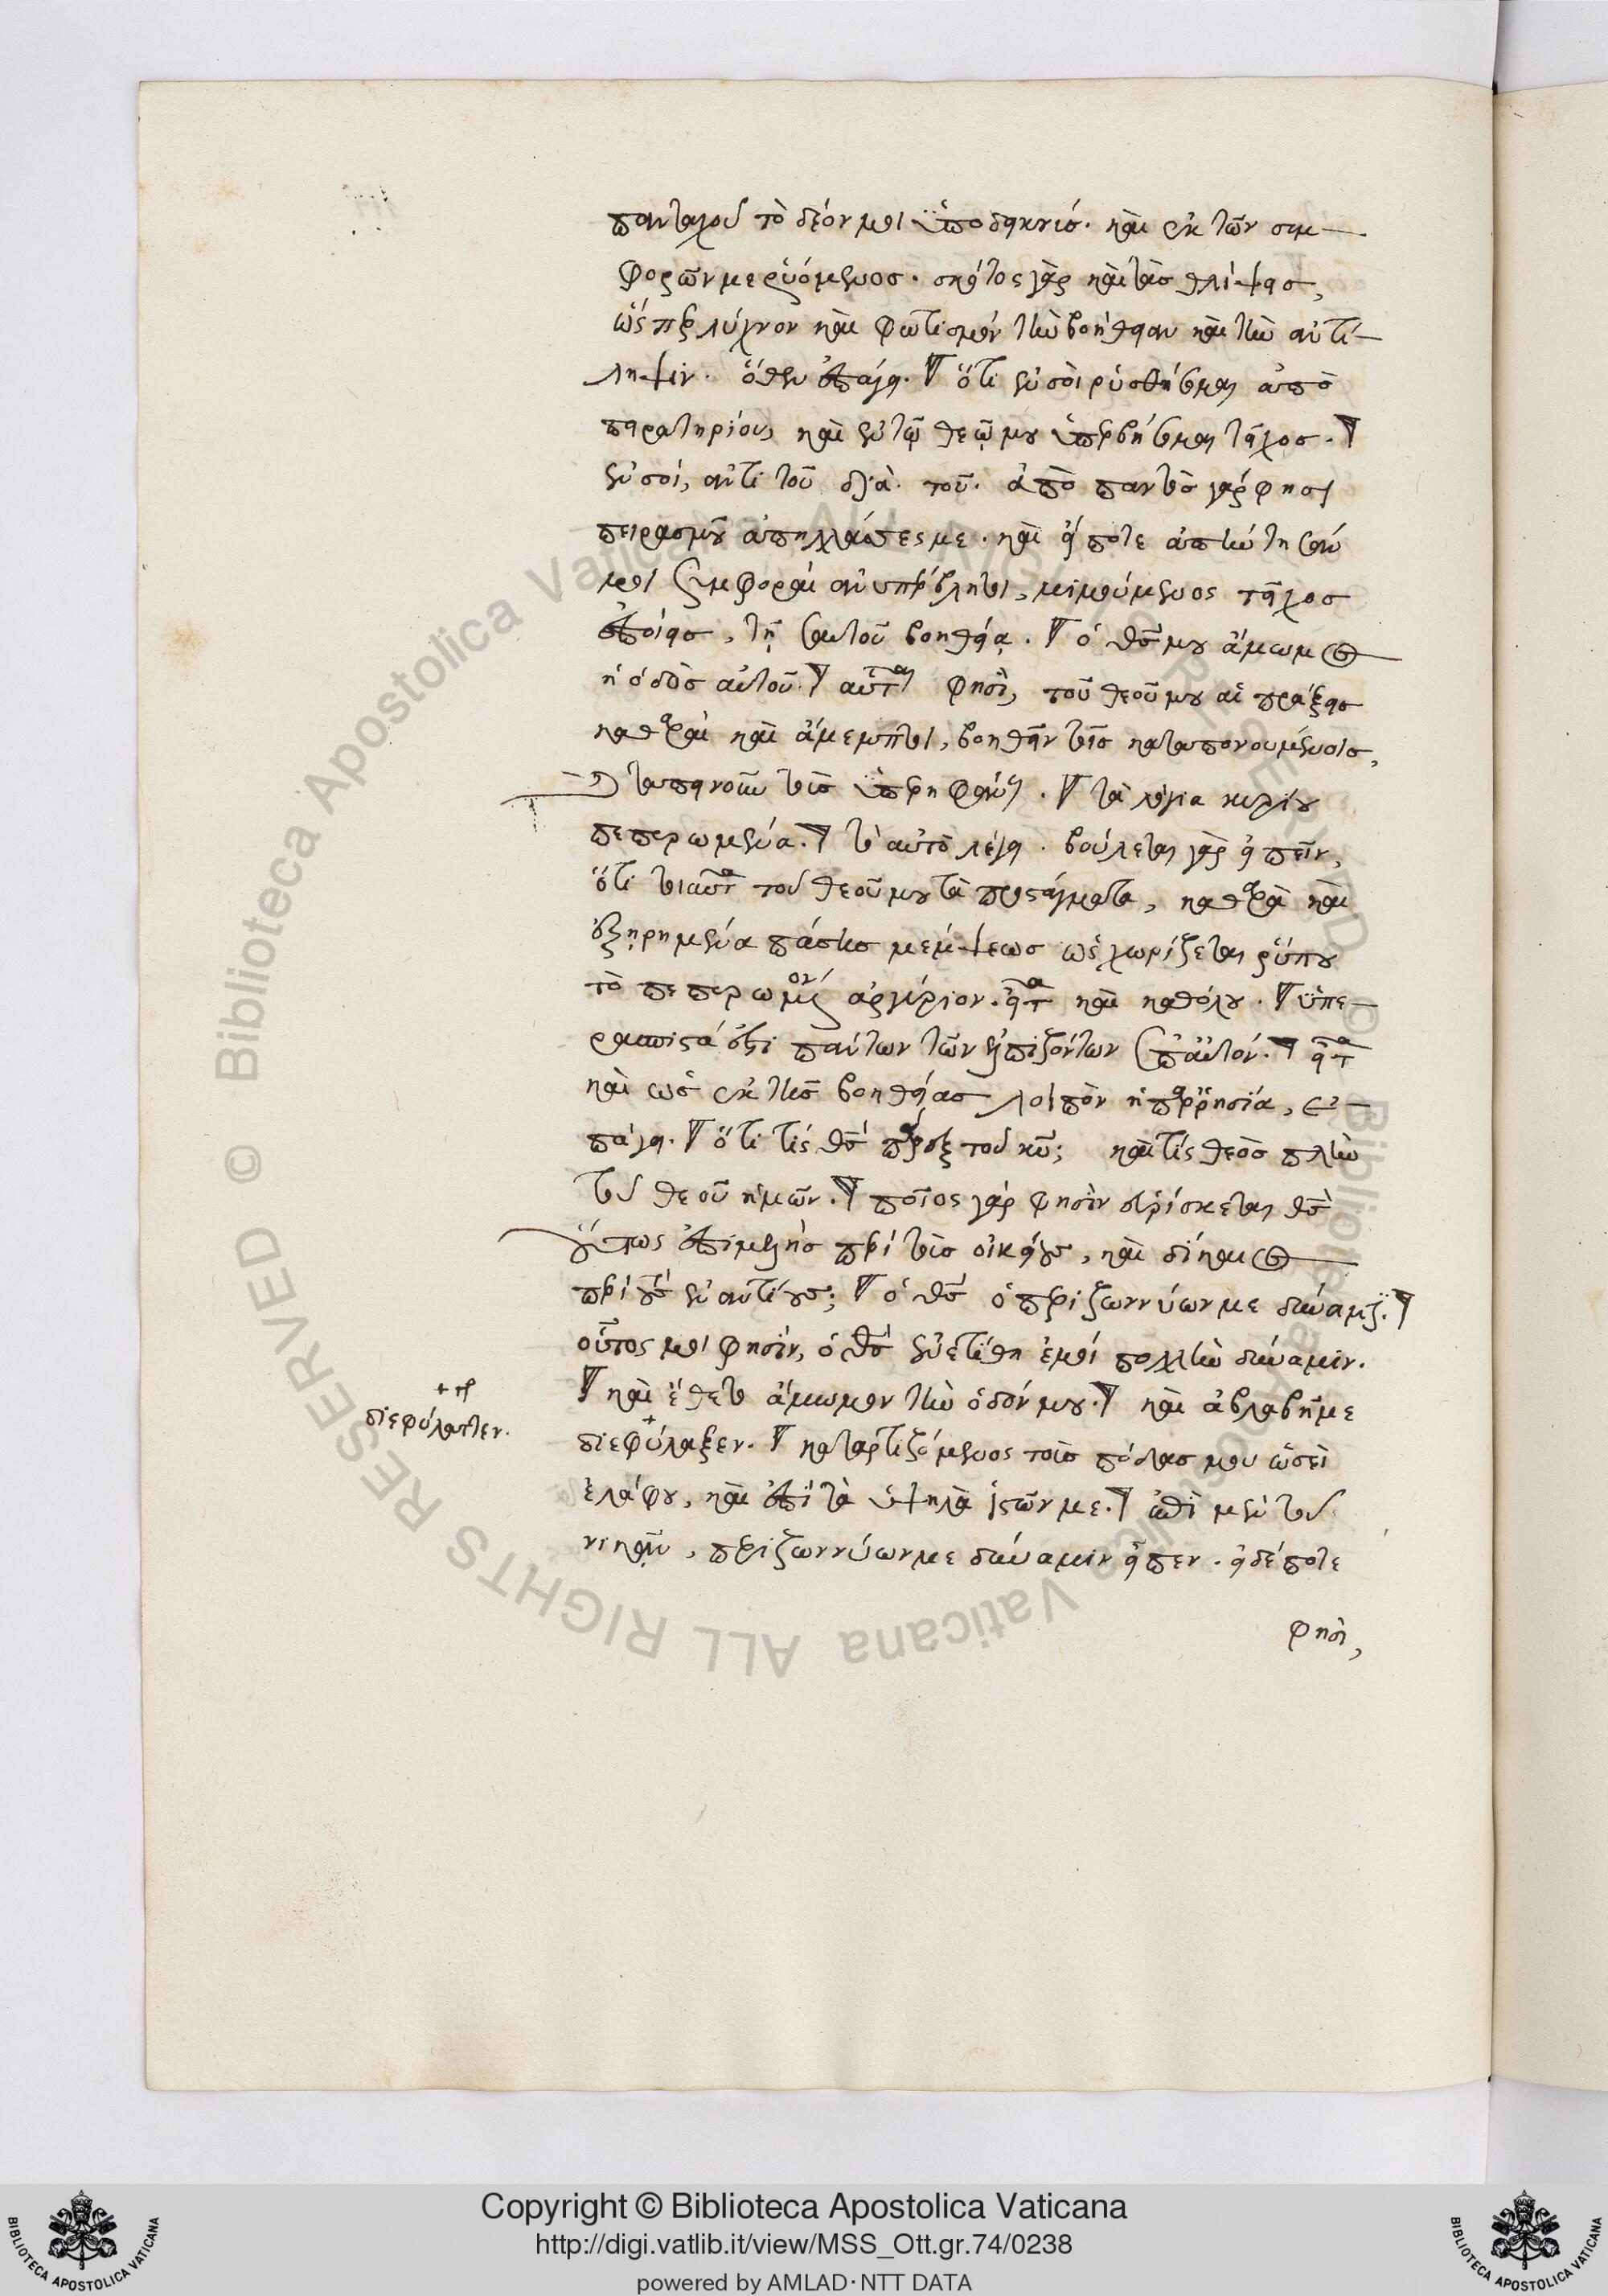 πανταχοῦ τὸ δέον μοι ὑποδεικνύς. καὶ ἐκ τῶν συμ-
φορῶν με ῥυόμενος. σκότος γὰρ καὶ τὰς θλίψεις,
ὥσπερ λύχνον καὶ φωτισμὸν τὴν βοήθειαν καὶ τὴν ἀντί-
ληψιν. ὅθεν ἐπάγει. ὅτι ἐν σοὶ ῥυσθήσομαι ἀπὸ
πειρατηρίου, καὶ ἐν τῷ θεῷ μου ὑπερβήσομαι τεῖχος.
ἐν σοί, ἀντὶ τοῦ διὰ σοῦ. ἀπὸ παντὸς γάρ φησι
πειρασμοῦ ἀπηλλάττες με. καὶ εἴ ποτε ἀπήντησάν
μοι συμφοραὶ ἀνυπέρβλητοι, μιμούμενος τεῖχος
ἐποίεις, τῇ σαυτοῦ βοηθείᾳ. ὁ θς μου ἄμωμος
ἡ ὁδὸς αὐτοῦ. αὗται φησὶ, τοῦ θεοῦ μου αἱ πράξεις
καθαραὶ καὶ ἄμεμπτοι, βοηθεῖν τοῖς καταπονουμένοις,
ταπεινοῦν τοὺς ὑπερηφάνους. τὰ λόγια κυρίου
πεπυρωμένα. τὸ αὐτὸ λέγει. βούλεται γὰρ εἰπεῖν,
ὅτι τοιαῦτα τοῦ θεοῦ μου τὰ προστάγματα, καθαρὰ καὶ
ἐξῃρημένα πάσης μέμψεως ὡς χωρίζεται ῥύπου
τὸ πεπυρωμένον ἀργύριον. εἶτα καὶ καθόλου. ὑπε-
ρασπιστά ἐστι πάντων τῶν ἐλπιζόντων ἐπ' αὐτόν. εἶτα
καὶ ὡς ἐκ τῆς βοηθείας λοιπὸν ἡ παρρησία, ἐ-
πάγει. ὅτι τίς θς πάρεξ τοῦ κυ; καὶ τίς θεὸς πλὴν
τοῦ θεοῦ ἡμῶν. ποῖος γάρ φησιν εὑρίσκεται θς
οὕτως ἐπιμελὴς περὶ τοὺς οἰκείους, καὶ δίκαιος
περὶ τοὺς ἐναντίους; ὁ θς ὁ περιζωννύων με δύναμιν.
οὗτος μοι φησίν, ὁ θς ἐνετίθη ἐμοί πολλὴν δύναμιν.
καὶ ἔθετο ἄμωμον τὴν ὁδόν μου. καὶ ἀβλαβῆ με
διεφύλαξεν. καταρτιζόμενος τοὺς πόδας μου ὡσεὶ
ἐλάφου, καὶ ἐπὶ τὰ ὑψηλὰ ἱστῶν με. ἐπὶ μὲν τοῦ
νικᾶν, περιζωννύων με δύναμιν εἶπεν. εἰ δέ ποτε
φησὶ,
διεφύλαττεν.
Copyright © Biblioteca Apostolica Vaticana
http://digi.vatlib.it/view/MSS_Ott.gr.74/0238
powered by AMLAD·NTT DATA
© Biblioteca Apostolica Vaticana ALL RIGHTS RESERVED
© Biblioteca Apostolica Vaticana ALL RIGHTS RESERVED
BIBLIOTECA APOSTOLICA VATICANA
BIBLIOTECA APOSTOLICA VATICANA